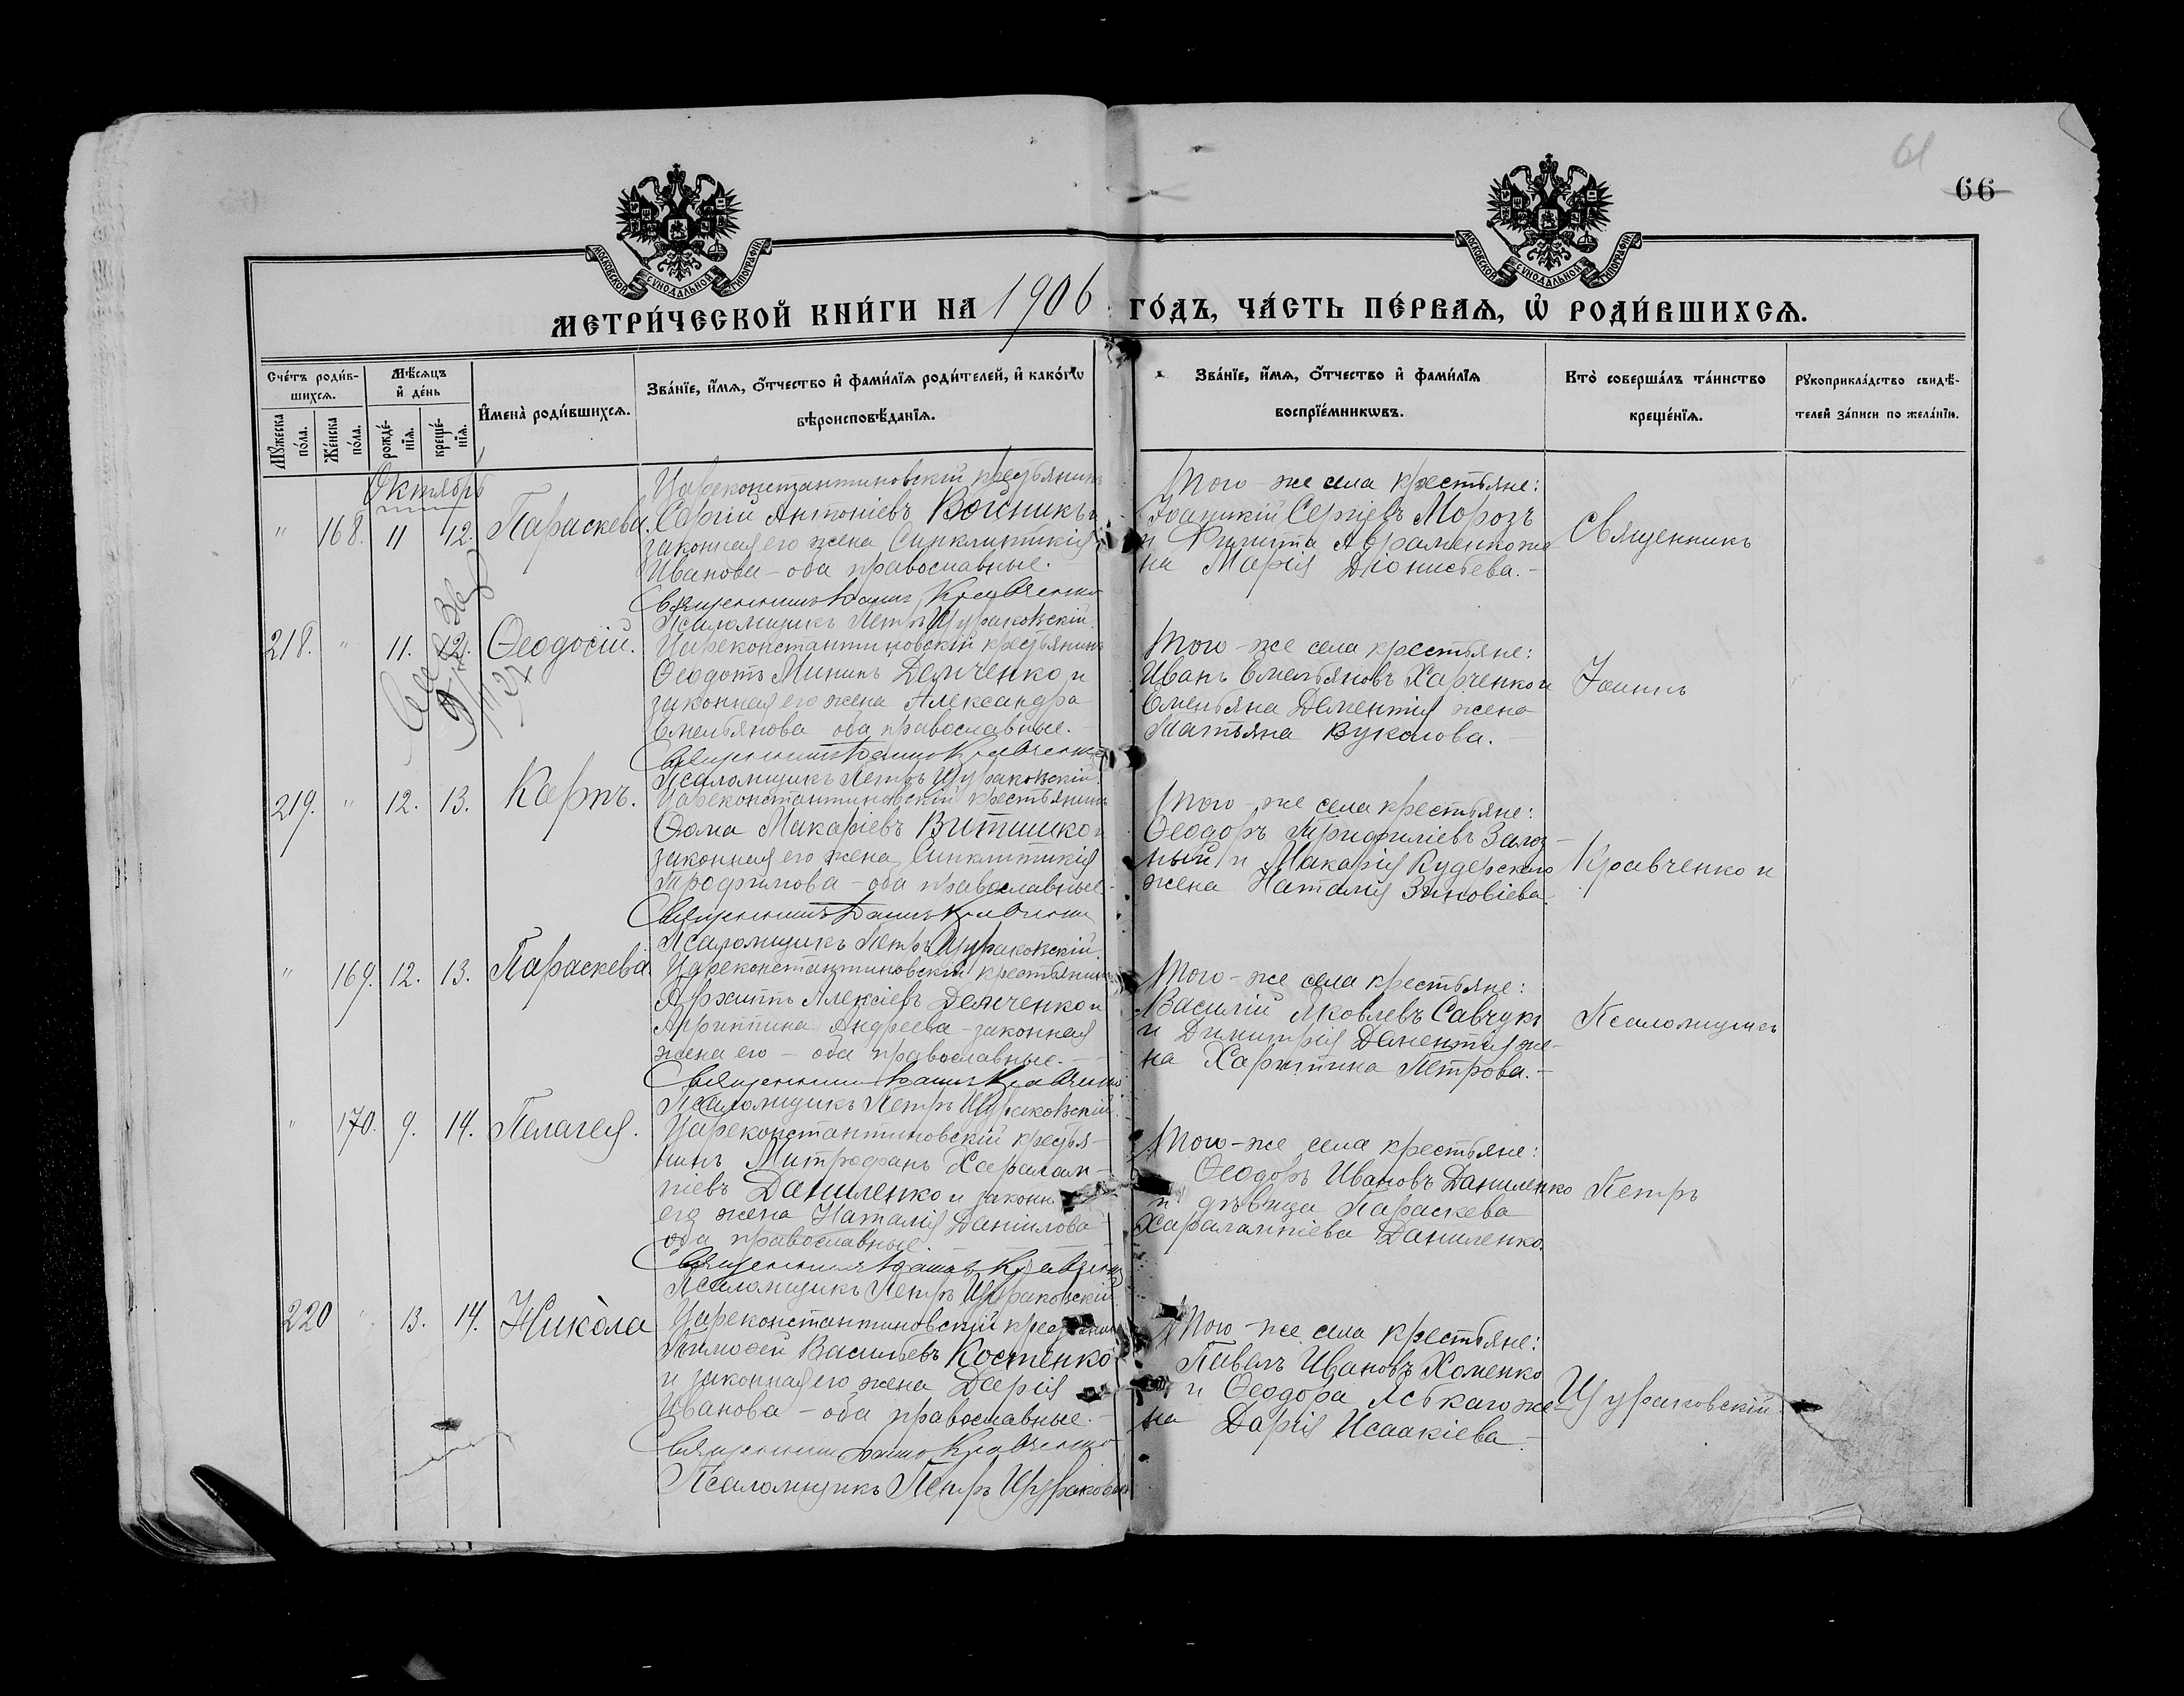 61
66
МОСКОВСКОЙ СѴНОДАЛЬНОЙ ТИПОГРАФІИ
МОСКОВСКОЙ СѴНОДАЛЬНОЙ ТИПОГРАФІИ
МЕТРИ́ЧЕСКОЙ КНИ́ГИ НА 1906 ГО́ДЪ, ЧА́СТЬ ПЕ́РВАѦ, Ѽ РОДИ́ВШИХСѦ.
Сче́тъ роди́в-
шихсѧ.
Мꙋ́жеска по́ла.
Же́нска по́ла.
Мѣ́сѧцъ
и҆ де́нь
рожде́-
нїѧ.
креще́-
нїѧ.
И҆мена̀ роди́вшихсѧ.
Зва́нїе, и҆́мѧ, ѻ҆́тчество и҆ фами́лїѧ роди́телей, и҆ како́гѡ
вѣроисповѣ́данїѧ.
Зва́нїе, и҆́мѧ, ѻ҆́тчество и҆ фами́лїѧ
воспрїе́мникѡвъ.
Кто̀ соверша́лъ та́инство
креще́нїѧ.
Рꙋкоприкла́дство свидѣ́-
телей за́писи по жела́нїю.
Октябрь
" 168. 11 12. Параскева.
Цареконстантиновскій крестьянинъ
Сергій Антоніевъ Войникъ и
законная его жена Синклитикія
Иванова - оба православные.
Священникъ Іоаннъ Кравченко
Псаломщикъ Петръ Щураковскій.
Того-же села крестьяне:
Іоанникій Сергіевъ Морозъ
и Филиппа Авраменко же-
на Марія Діонисьева.-
Священникъ
218. " 11. 12. Ѳеодосій.
Цареконстантиновскій крестьянинъ
Ѳеодотъ Мининъ Демченко и
законная его жена Александра
Емельянова оба православные.-
Священникъ Іоаннъ Кравченко
Псаломщикъ Петръ Щураковскій.
Того-же села крестьяне:
Иванъ Емельяновъ Харченко и
Емельяна Дементія жена
Татьяна Вуколова.-
Іоаннъ
219. " 12. 13. Карпъ.
Цареконстантиновскій крестьянинъ
Ѳома Макаріевъ Витишко и
законная его жена Синклитикія
Трофимова - оба православные.
Священникъ Іоаннъ Кравченко
Псаломщикъ Петръ Щураковскій.
Того-же села крестьяне:
Ѳеодоръ Трифиліевъ Залоз-
ный и Макарія Кудерскаго
жена Наталія Зиновіева.
Кравченко и
" 169. 12. 13. Параскева.
Цареконстантиновскій крестьянинъ
Архиппъ Алексіевъ Демченко и
Агриппина Андреева - законная
жена его - оба православные.-
Священникъ Іоаннъ Кравченко
Псаломщикъ Петръ Щураковскій.
Того-же села крестьяне:
Василій Яковлевъ Савчукъ
и Димитрія Дементія же-
на Харитина Петрова.-
Псаломщикъ
" 170. 9. 14. Пелагея.
Цареконстантиновскій крестья-
нинъ Митрофанъ Харалам-
піевъ Даниленко и законн
его жена Наталія Даніилова-
оба православные.
Священникъ Іоаннъ Кравченко
Псаломщикъ Петръ Щураковскій
Того-же села крестьяне:
Ѳеодоръ Ивановъ Даниленко
и дѣвица Параскева
Харалампіева Даниленко.
Петръ
220 " 13. 14. Никола
Цареконстантиновскій крестьянинъ
Тимоѳей Васильевъ Костенко
и законная его жена Дарія
Иванова - оба православные.-
Священникъ Іоаннъ Кравченко
Псаломщикъ Петръ Щураковскій
Того-же села крестьяне:
Павелъ Ивановъ Хоменко
и Ѳеодора Яськаго же-
на Дарія Исаакіева.-
Щураковскій